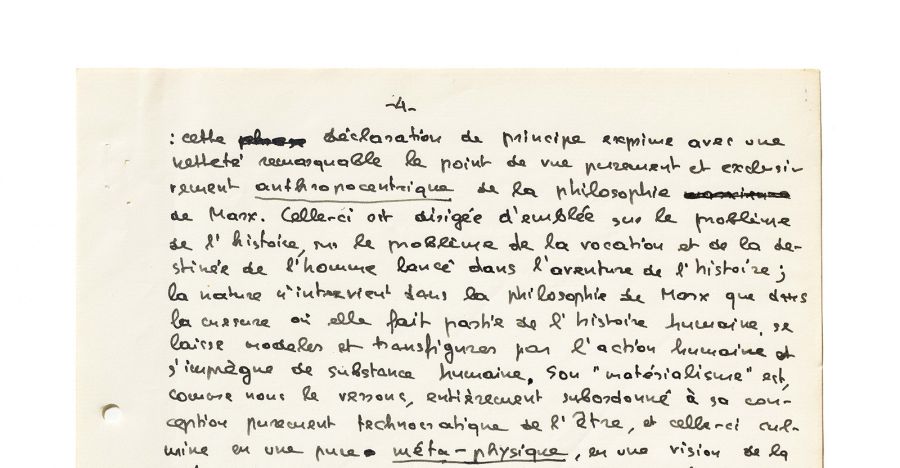 -4-
: cette déclaration de principe exprime avec une
netteté remarquable le point de vue purement et exclusi-
vement anthropocentrique de la philosophie
de Marx. Celle-ci est dirigée d'emblée sur le problème
de l'histoire, sur le problème de la vocation et de la de-
stinée de l'homme lancé dans l'aventure de l'histoire ;
la nature n'intervient dans la philosophie de Marx que dans
la mesure où elle fait partie de l'histoire humaine, se
laisse modeler et transfigurer par l'action humaine et
s'imprègne de substance humaine. Son "matérialisme" est,
comme nous le verrons, entièrement subordonné à sa con-
ception purement technocratique de l'Être, et celle-ci cul-
mine en une pure méta-physique, en une vision de la